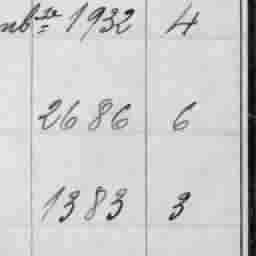 1932 4
2686 6
1383 3